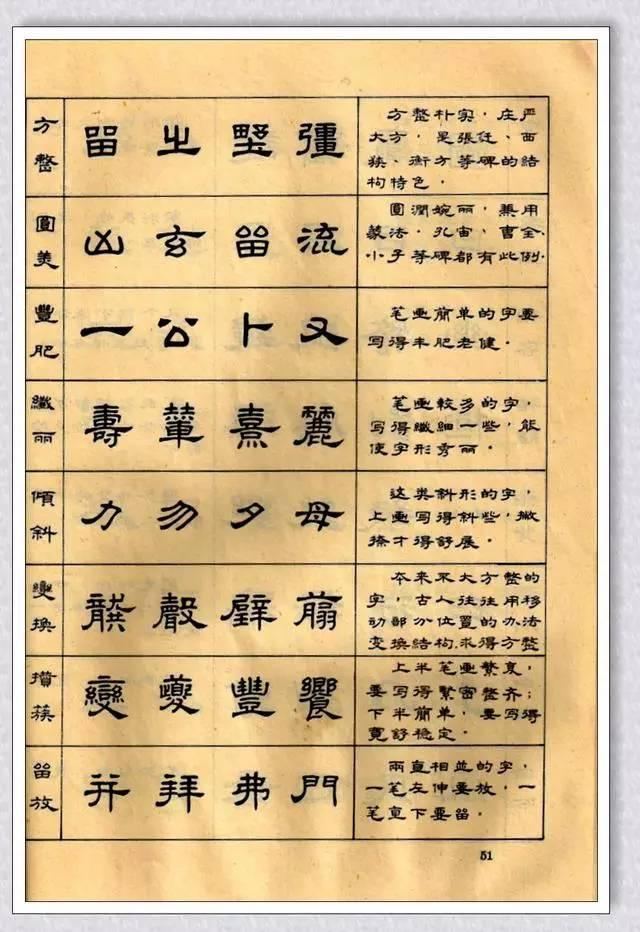 方整
留 之 彊
方整朴实，庄严
大方，是張迁、西
狭、衡方等碑的結
构特色。
圓美
凶 玄 留 流
圓潤婉丽，兼用
篆法，孔宙，曹全，
小子等碑都有此例.
豐肥
一 公 卜 又
笔画簡单的字要
写得丰肥老健。
纖丽
壽 熹 麗
笔画較多的字，
写得纖細一些，能
使字形秀丽。
傾斜
力 勿 夕 母
这类斜形的字，
上画写得斜些，撇
捺才得舒展。
变換
本来不大方整的
字，古人往往用移
动部分位置的办法
变换結构.求得方整
攢蔟
變 夔 豐 饗
上半笔画繁复，
要写得緊密整齐；
下半簡单，要写得
寬舒稳定。
留放
并 拜 弗 門
兩直相並的字，
一笔左伸要放，一
笔直下要留。
51